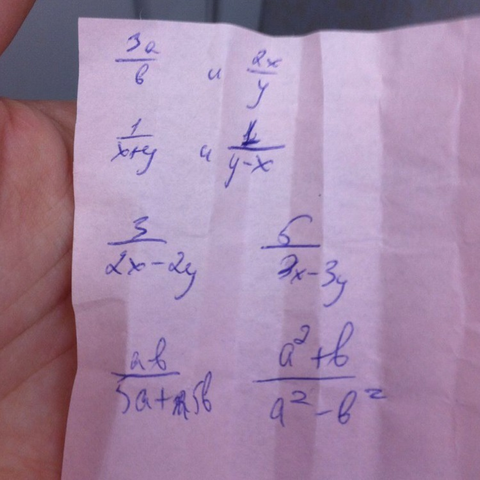 3a/в и 2x/y
1/(x+y) и 1/(y-x)
3/(2x-2y) 5/(3x-3y)
aв/(5a+5в) (a²+в)/(a²-в²)